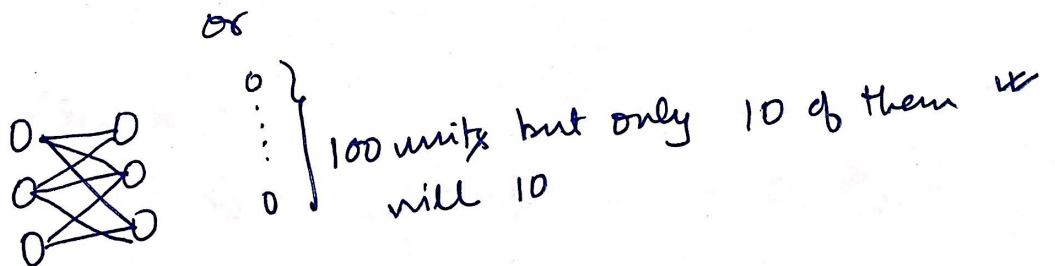 or
100 units but only 10 of them
will 10